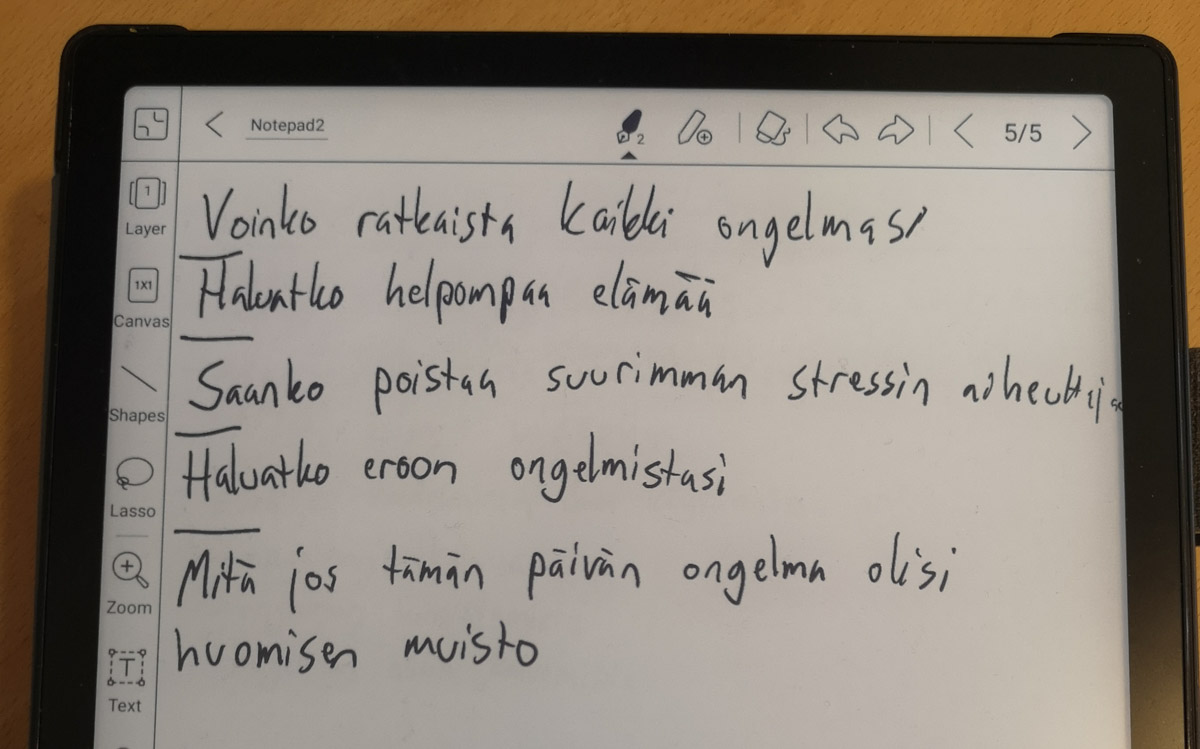 Notepad2
2
5/5
Layer
1
Canvas
1X1
Shapes
Lasso
Zoom
T
Text
Voinko ratkaista kaikki ongelmasi
Haluatko helpompaa elämää
Saanko poistaa suurimman stressin aiheuttaja
Haluatko eroon ongelmistasi
Mitä jos tämän päivän ongelma olisi
huomisen muisto